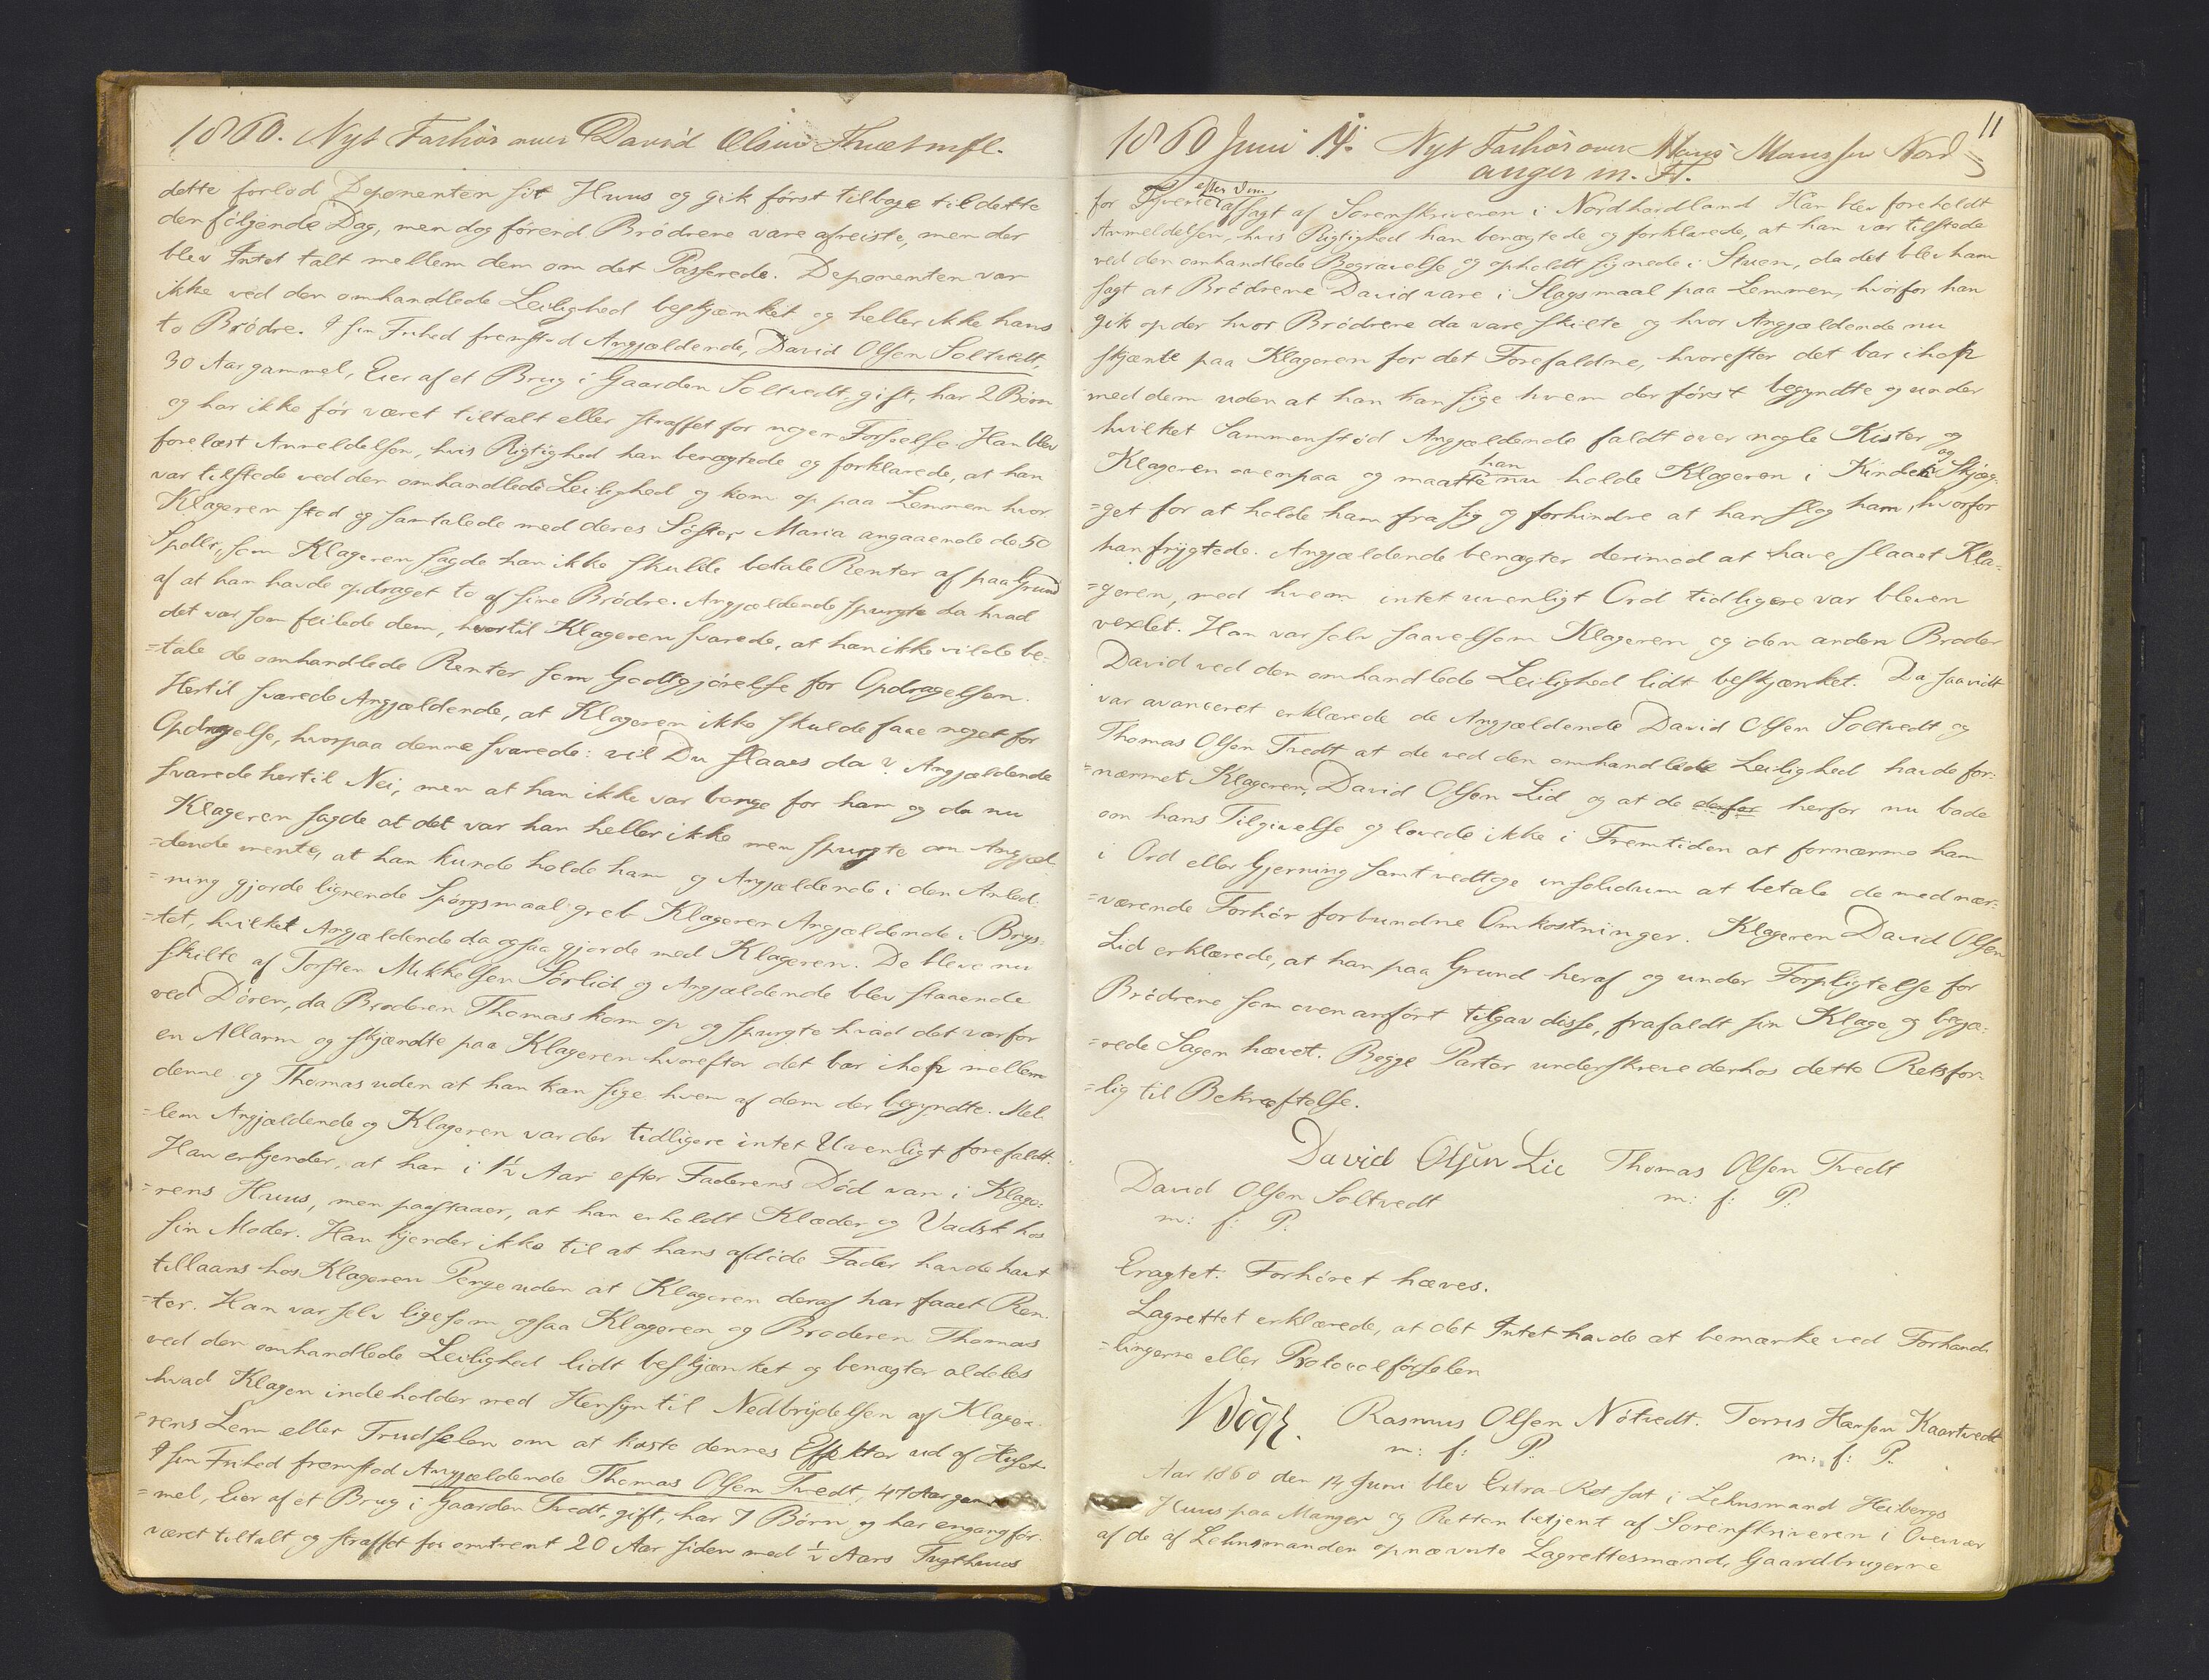 1860. Nyt Forhör over David Olsen Thuet m fl.
dette forlod Deponenten sit Huus og gik först tilbage til dette
den fölgende Dag, men dog förend Brödrene vare afreiste, men der
blev Intet talt mellem dem om det Passerede. Deponenten var
ikke ved den omhandlede Leilighed beskjænket og heller ikke hans
to Brödre. I sin Frihed fremstod Angjældende, David Olsen Soltvedt,
30 Aar gammel, Eier af et Brug i Gaarden Soltvedt, gift, har 2 Börn
og har ikke för været tiltalt eller straffet for nogen Forseelse. Han blev
forelæst Anmeldelsen, hvis Rigtighed han benægtede og forklarede, at han
var tilstede ved den omhandlede Leilighed og kom op paa Lemmen hvor
Klageren stod og samtalede med deres Söster Maria angaaende de 50
Spdlr, som Klageren sagde han ikke skulde betale Renter af paa Grund
af at han havde opdraget to af sine Brödre. Angjældende spurgte da hvad
det var som feilede dem, hvortil Klageren svarede, at han ikke vilde be-
=tale de omhandlede Renter som Godtgjörelse for Opdragelsen.
Hertil svarede Angjældende, at Klageren ikke skulde faae noget for
Opdragelse, hvorpaa denne svarede: vil Du slaaes da? Angjældende
svarede hertil Nei, men at han ikke var bange for ham og da nu
Klageren sagde at det var han heller ikke men spurgte om Angjæl-
=dende mente, at han kunde holde ham og Angjældende i den Anled-
=ning gjorde lignende Spörgsmaal greb Klageren Angjældende i Brys-
=tet, hvilket Angjældende da ogsaa gjorde med Klageren. De bleve nu
skilte af Torsten Mikkelsen Sörlid og Angjældende blev staaende
ved Dören, da Broderen Thomas kom op og spurgte hvad det var for
en Allarm og skjændte paa Klageren hvorefter det bar ihop mellem
denne og Thomas uden at han kan sige hvem af dem der begyndte. Mel-
=lem Angjældende og Klageren var der tidligere intet Uvenligt forefaldt.
Han erkjender, at han i 1½ Aar efter Faderens Död var i Klage-
=rens Huus, men paastaaer, at han erholdt Klæder og Vadsk hos
sin Moder. Han kjender ikke til at hans aflöde Fader havde havt
tillaans hos Klageren Penge uden at Klageren deraf har faaet Ren-
=ter. Han var selv ligesom ogsaa Klageren og Broderen Thomas
ved den omhandlede Leilighed lidt beskjænket og benægter aldeles
hvad Klagen indeholder med Hensyn til Nedbrydelsen af Klage-
=rens Lem eller Trudselen om at kaste dennes Effekter ud af Huset.
I sin Frihed fremstod Angjældende Thomas Olsen Tvedt, 47 Aar gam-
=mel, Eier af et Brug i Gaarden Tvedt, gift, har 7 Börn og har engang för
været tiltalt og straffet for omtrent 20 Aar siden med ½ Aars Tugthuus
11
1860 Juni 14. Nyt Forhör over Mons Monssen Nord-
anger m. Fl.
for Tyverie efter Dom afsagt af Sorenskriveren i Nordhordland Han blev foreholdt
Anmeldelsen, hvis Rigtighed han benægtede og forklarede, at han var tilstede
ved den omhandlede Begravelse og opholdt sig nede i Stuen, da det blev ham
sagt at Brödrene David vare i Slagsmaal paa Lemmen, hvorfor han
gik op der hvor Brödrene da vare skilte og hvor Angjældende nu
skjænte paa Klageren for det Forefaldne, hvorefter det bar ihop
med dem uden at han kan sige hvem der först begyndte og under
hvilket Sammenstöd Angjældende faldt over nogle Kister og
Klageren ovenpaa og maatte han nu holde Klageren i Kinden og Skjæg-
=get for at holde ham fra sig og forhindre at han slog ham, hvorfor
han frygtede. Angjældende benægter derimod at have slaaet Kla-
=geren, med hvem intet uvenligt Ord tidligere var bleven
vexlet. Han var selv saavelsom Klageren og den anden Broder
David ved den omhandlede Leilighed lidt beskjænket. Da saavidt
var avanceret erklærede de Angjældende David Olsen Soltvedt og
Thomas Olsen Tvedt at de ved den omhandlede Leilighed havde for-
=nærmet Klageren, David Olsen Lid og at de derfor herfor nu bade
om hans Tilgivelse og lovede ikke i Fremtiden at fornærme ham
i Ord eller Gjerning samt vedtoge in solidum at betale de med nær-
=værende Forhör forbundne Omkostninger. Klageren David Olsen
Lid erklærede, at han paa Grund heraf og under Forpligtelse for
Brödrene som ovenanfört tilgav disse, frafaldt sin Klage og begjæ-
=rede Sagen hævet. Begge Parter underskreve derhos dette Retsfor-
=lig til Bekræftelse.
David Olsen Lie Thomas Olsen Tvedt
David Olsen Soltvedt m: f: P:
m: f: P:
Eragtet: Forhöret hæves.
Lagrettet erklærede, at det Intet havde at bemærke ved Forhand-
=lingerne eller Protocolförselen
Bögh. Rasmus Olsen Nötvedt. Torris Hansen Kaartvedt
m: f: P. m: f: P.
Aar 1860 den 14 Juni blev Extra-Ret sat i Lehnsmand Heibergs
Huus paa Manger og Retten betjent af Sorenskriveren i Overvær
af de af Lehnsmanden opnævnte Lagrettesmænd, Gaardbrugerne